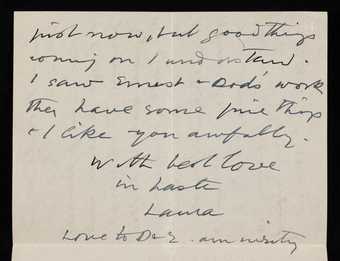 just now, but good things
coming on I understand.
I saw Ernest & Dod's work
they have some fine things
& I like you awfully.
With best love
in haste
Laura
Love to D & E. am